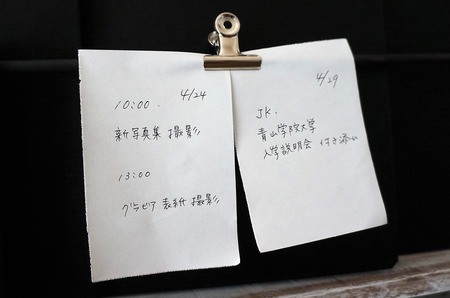 4/24
10:00.
新写真集 撮影
13:00
グラビア 表紙 撮影
4/29
JK.
青山学院大学
入学説明会 付き添い